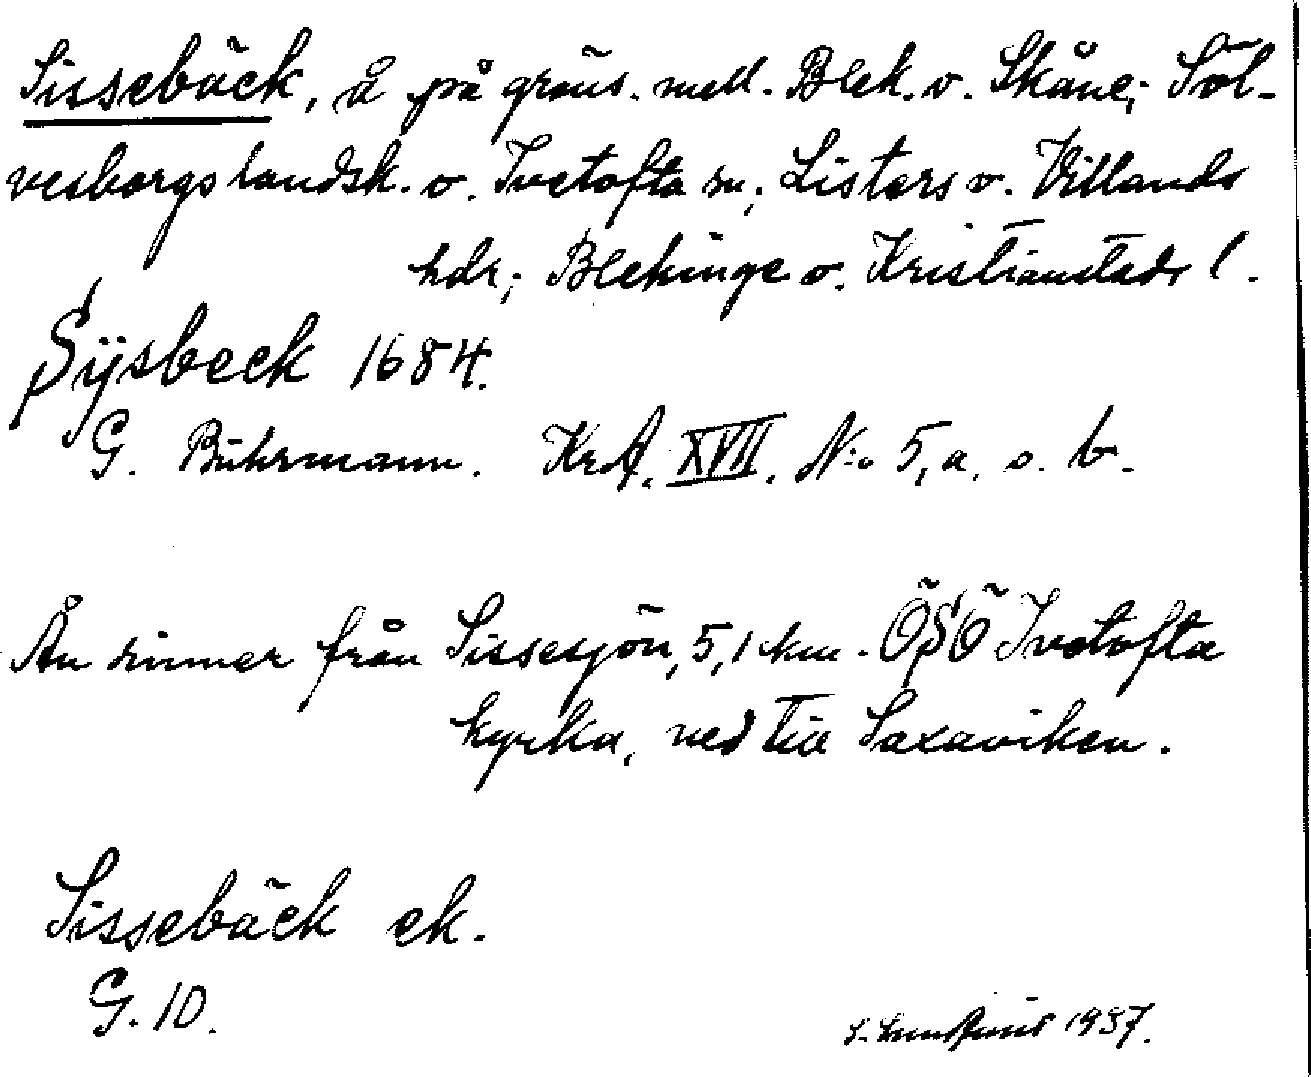 Sissebäck, å på gräns. mell. Blek. o. Skåne; Söl-
vesborgs landsk. o. Ivetofta sn; Listers o. Villands
hdr; Blekinge o. Kristianstads l.
Sÿsbeck 1684.
G. Buhrmann. KrA. XVII. N:o 5, a. o. b.
Ån rinner från Sissesjön, 5,1 km. ÖSÖ Ivetofta
kyrka, ned till Saxaviken.
Sissebäck ek.
G. 10.
1937.